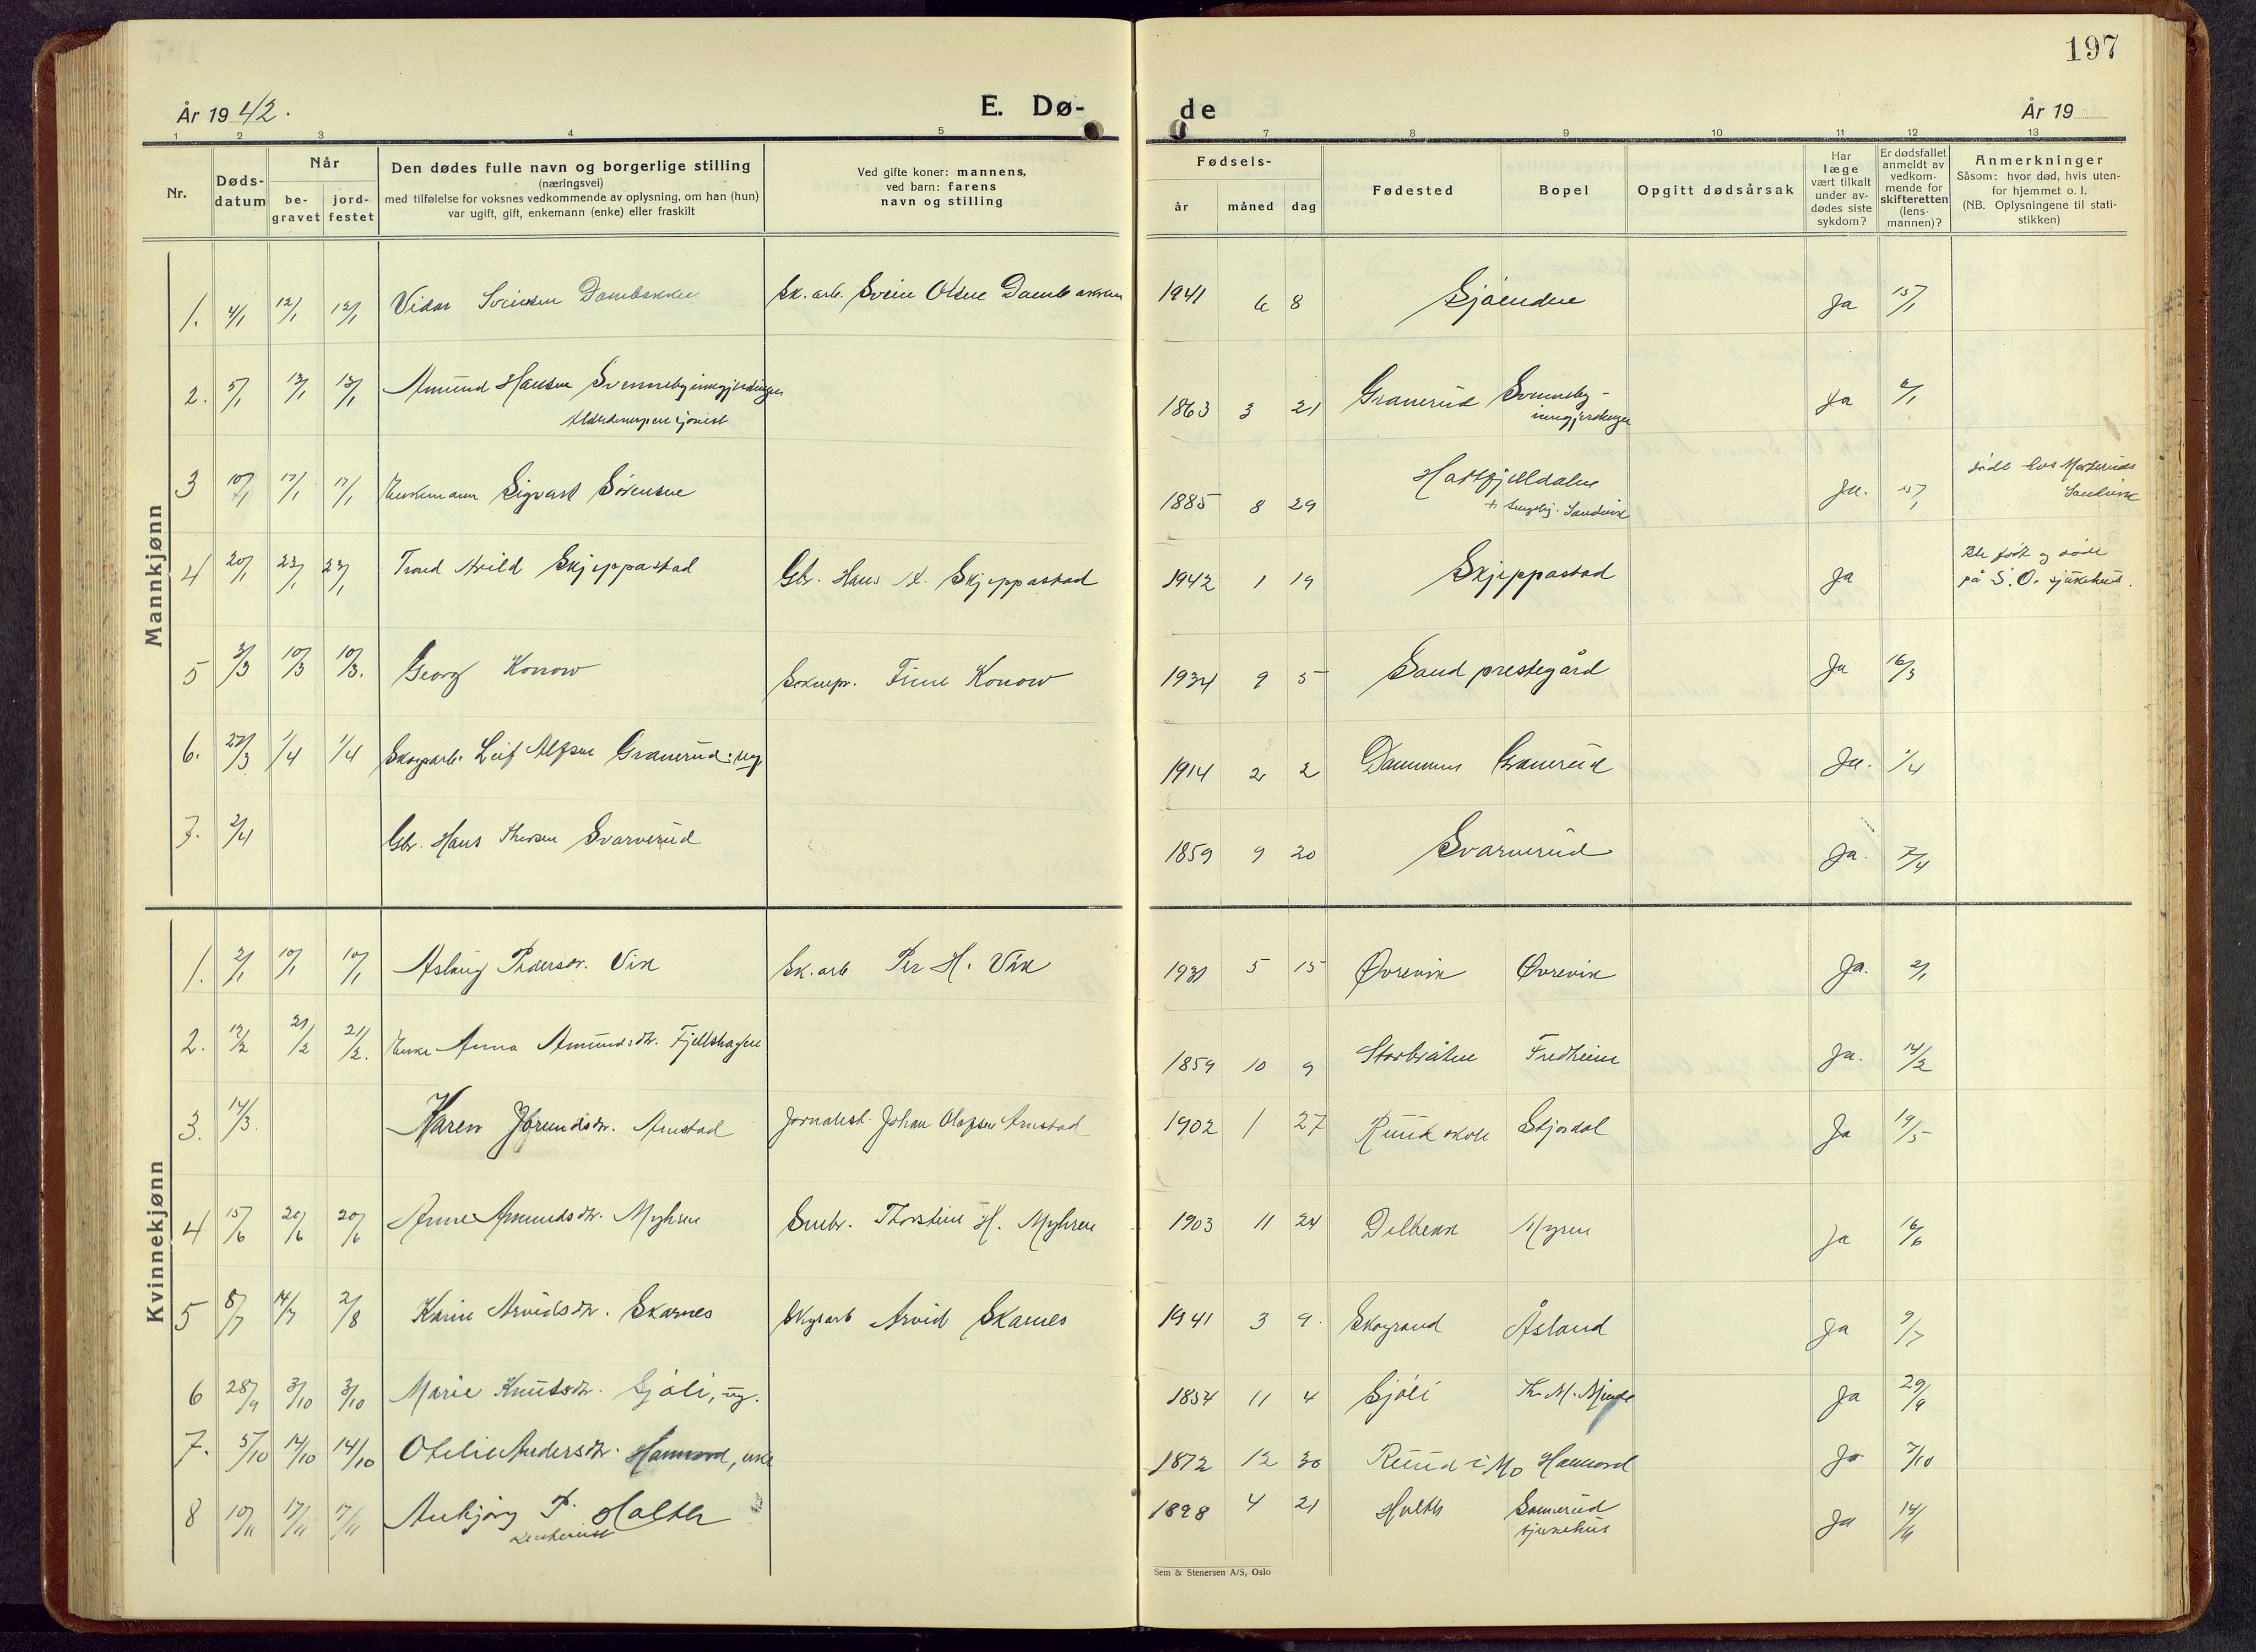 197
År 1942.
E. Dø-
de
År 19
1 2 3 4 5
7 8 9 10 11 12 13
Nr.
Døds-
datum
Når
be-
gravet
jord-
festet
Den dødes fulle navn og borgerlige stilling
(næringsvei)
med tilføielse for voksnes vedkommende av oplysning, om han (hun)
var ugift, gift, enkemann (enke) eller fraskilt
Ved gifte koner: mannens,
ved barn: farens
navn og stilling
Fødsels-
år måned dag
Fødested
Bopel
Opgitt dødsårsak
Har
læge
vært tilkalt
under av-
dødes siste
sykdom?
Er dødsfallet
anmeldt av
vedkom-
mende for
skifteretten
(lens-
mannen)?
Anmerkninger
Såsom: hvor død, hvis uten-
for hjemmet o. l.
(NB. Oplysningene til stati-
stikken)
Mannkjønn
1. 4/1 12/1 12/1 Vidar Sveinsen Dambakken Sk. arb. Svein Olsen Dambakken 1941 6 8 Sjøenden Ja 15/1
2. 5/1 13/1 13/1 Amund Hansen Svennebyinngjerdingen 1863 3 21 Granerud Svenneby-
inngjerdingen Ja
Alderdomspensjonist
3 10/1 17/1 17/1 Enkemann Sigvart Sörensen 1885 8 29 Hattfjelldalen Ja. 15/1 döde hos
Sandvik
4 20/1 23/1 23/1 Trond Arild Skjeppastad Gbr. Hans A. Skjeppastad 1942 1 19 Skjeppastad Ja Ble født og döde
på S. O. sjukehus.
5 3/3 10/3 10/3. Georg Konow Soknepr. Tine Konow 1934 9 5 Sand prestegård Ja 16/3
6. 27/3 1/4 1/4 Skogsarb. Leif Alfsen Granerud: ug. 1914 2 2 Dammen Granerud Ja. 1/4
7. 2/4 Gbr. Hans Thersen Svarverud 1859 9 20 Svarverud Ja. 7/4
Kvinnekjønn
1. 2/1 10/1 10/1 Aslaug Pedersdr. Vik Sk. arb. Per H. Vik 1931 5 15 Øvrevik Øvrevik Ja. 2/1
2. 12/2 21/2 21/2. Enke Anna Amundsdtr. Fjellshagen 1859 10 9 Storbråten Fredheim Ja. 14/2
3. 14/3. Karen Jörundsdtr. Arnstad Jornalist. Johan Olafsen Arnstad 1902 1 27 Ruud skole Stjørdal Ja 19/5
4 15/6 20/6 20/6 Anne Amundsdtr. Myhren Smbr. Thorstein H. Myhren 1903 11 24 Dølbekk Myren Ja 16/6
5 8/7 14/7 2/8 Karin Arvidsdtr. Skarnes Skogsarb Arvid Skarnes 1941 3 9. Skogrand Åsland Ja 9/7
6 28/9 3/10 3/10 Marie Knutsdtr. Sjöli, ug. 1854 11 4 Sjöli Th. M. Minde Ja 29/9
7. 5/10 14/10 14/10 Otelie Andersdtr. Hannord, enke 1872 12 30 Ruud i Mo Hannord Ja 7/10
8 10/11 17/11 17/11 Anbjørg P. Holth 1898 4 21 Holth Sannerud
sjukehus Ja 14/11
Sem & Stenersen A/S, Oslo